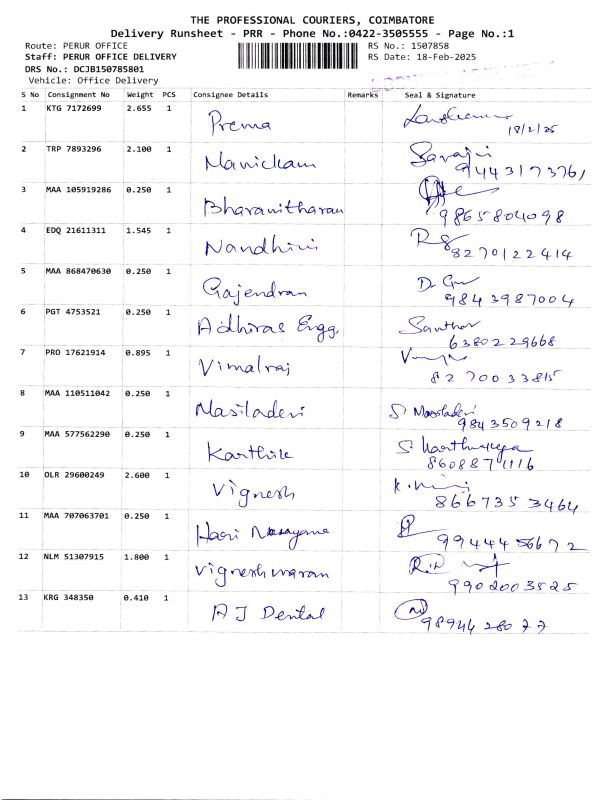 THE PROFESSIONAL COURIERS, COIMBATORE
Delivery Runsheet - PRR - Phone No.:0422-3505555 - Page No.:1
Route: PERUR OFFICE RS No.: 1507858
Staff: PERUR OFFICE DELIVERY RS Date: 18-Feb-2025
DRS No.: DCJB150785801
Vehicle: Office Delivery
S No Consignment No Weight PCS Consignee Details Remarks Seal & Signature
1 KTG 7172699 2.655 1 Prema
18/2/25
2 TRP 7893296 2.100 1 Manickam Saraju
9443173761
3 MAA 105919286 0.250 1 Bharanitharan
9865804098
4 EDQ 21611311 1.545 1 Nandhini
8270122414
5 MAA 868470630 0.250 1 Gajendran
9843987004
6 PGT 4753521 0.250 1 Adhiras Engg. Santhos
6380229668
7 PRO 17621914 0.895 1 Vimalraj
8270033815
8 MAA 110511042 0.250 1 Masiladevi S. Masiladevi
9843509218
9 MAA 577562290 0.250 1 Karthik S. Karthikeya
8608871116
10 OLR 29600249 2.600 1 Vignesh
8667353464
11 MAA 707063701 0.250 1 Hari Narayana
9944456672
12 NLM 51307915 1.800 1 Vigneshwaran
9902003525
13 KRG 348350 0.410 1 A J Dental
9894428077